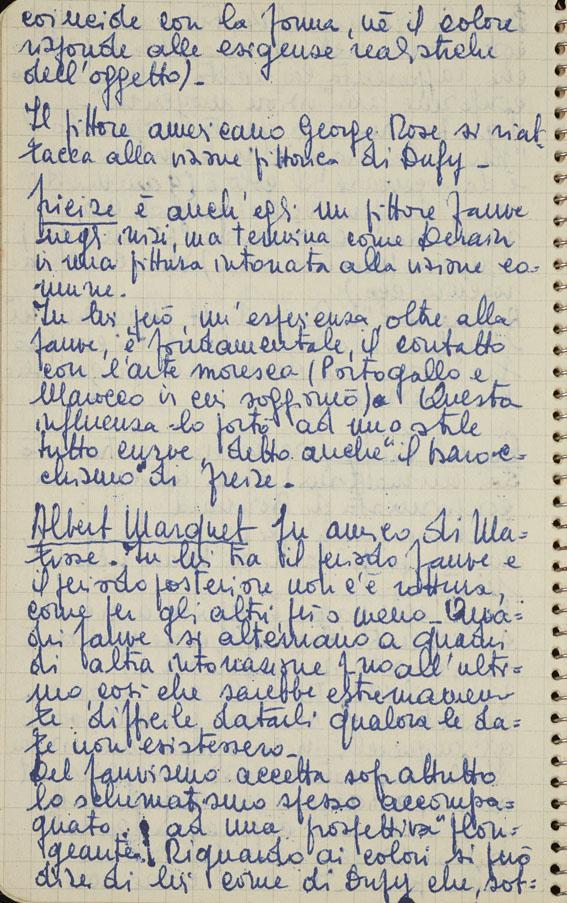 coincide con la forma, nè il colore
risponde alle esigenze realistiche
dell'oggetto).-
Il pittore americano George Rose si riat-
tacca alla visione pittorica di Dufy -
Frieze è anch'egli un pittore fauve
negli inizi, ma termina come Derain
in una pittura intonata alla visione co-
mune.
In lui però, un'esperienza, oltre alla
fauve, è fondamentale, il contatto
con l'arte moresca (Portogallo e
Marocco in cui soggiornò). Questa
influenza lo portò ad uno stile
tutto curve detto anche "il baroc-
chismo" di Frieze.
Albert Marquet fu amico di Ma=
tisse. In lui tra il periodo fauve e
il periodo posteriore non c'è rottura,
come per gli altri più o meno. Qua=
dri fauve si alternano a quadri
di altra intonazione fino all'ulti=
mo, così che sarebbe estremamen-
te difficile datarli qualora le da=
te non esistessero.
Del fauvismo accetta soprattutto
lo schematismo spesso accompa=
gnato ad una prospettiva "plon=
geante". Riguardo ai colori si può
dire di lui come di Dufy che, sot-